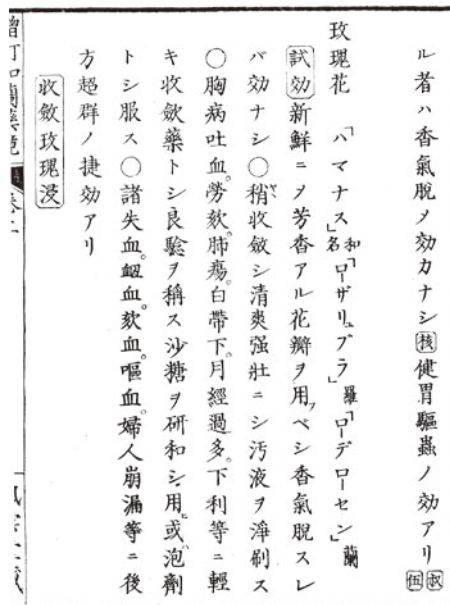 ル者ハ香氣脱メ効カナシ核健胃驅蟲ノ効アリ叔伍
玫瑰花「ハマナス」和名「ローザリュブラ」羅「ローデローセン」蘭
試効新鮮ニメ芳香アル花瓣ヲ用フベシ香氣脱スレ
バ効ナシ〇稍收斂シ清爽强壯ニシ汚液ヲ淨刷ス
〇胸病吐血。勞欬。肺瘍。白帶下。月經過多。下利等ニ輕
キ收斂藥トシ良驗ヲ稱ス沙糖ヲ研和シ用ヒ或ハ泡劑
トシ服ス〇諸失血。衄血。欬血。嘔血。婦人崩漏等ニ後
方超群ノ捷効アリ
收斂玫瑰浸